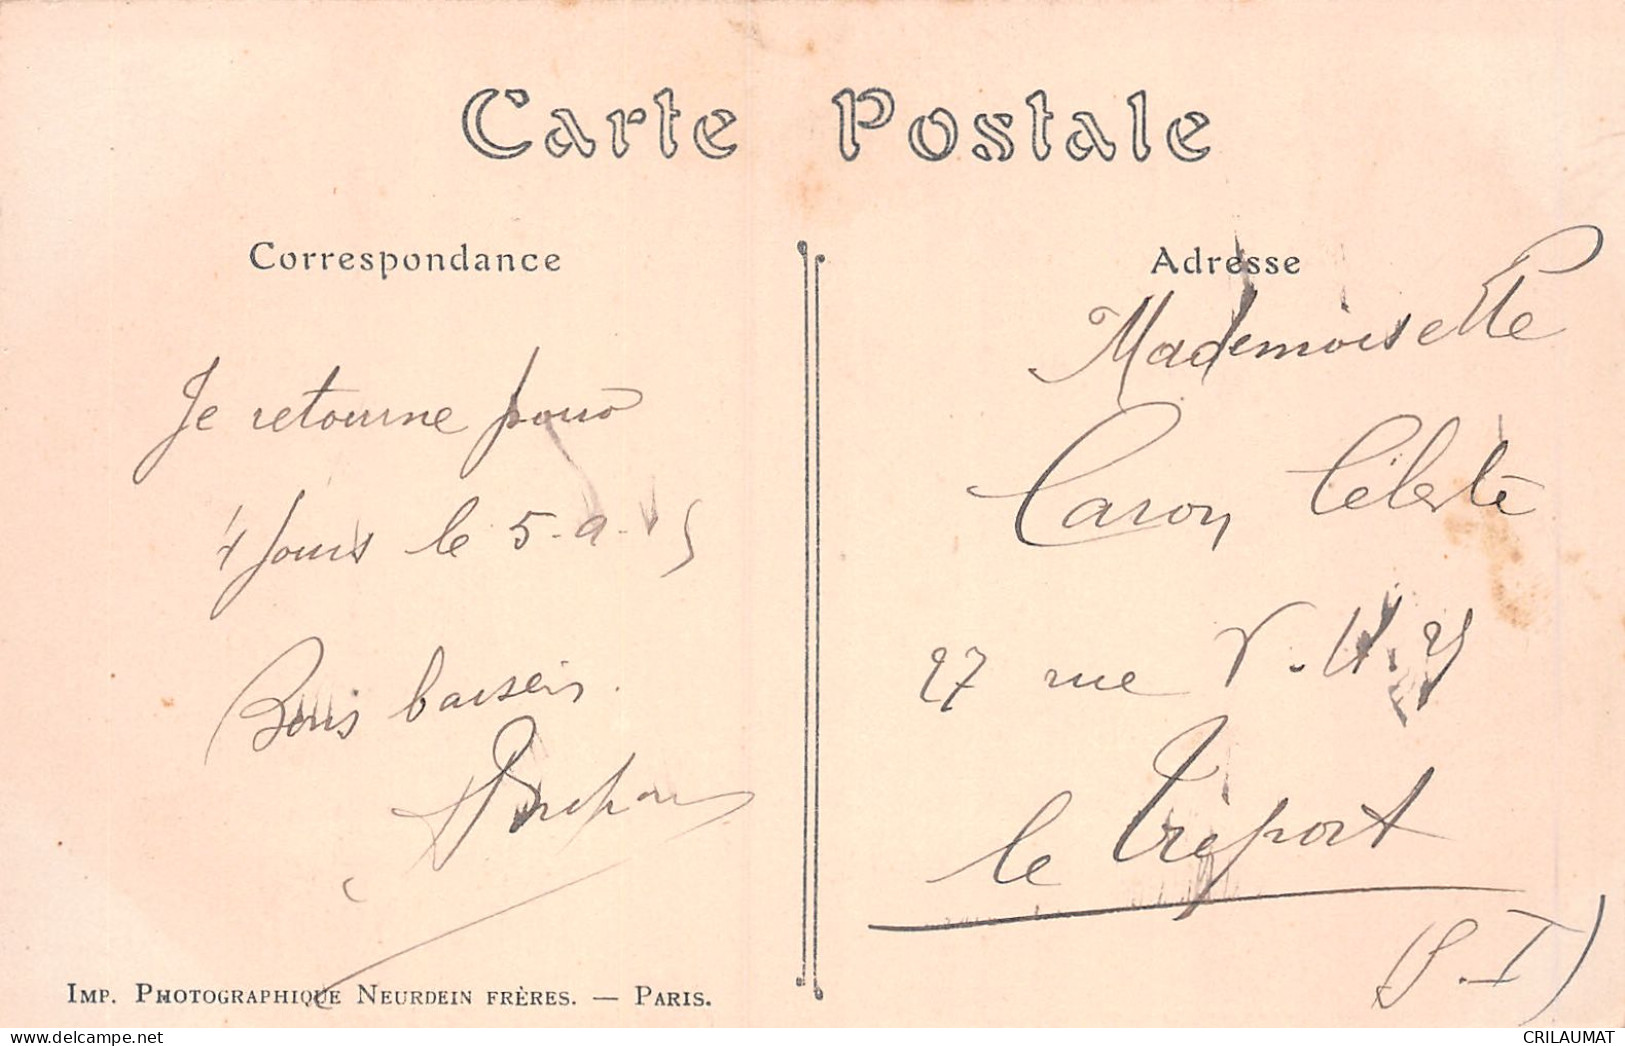 Carte Postale
Correspondance
Je retourne pour
4 jours le 5-9-15
Bons baisers.
Adresse
Mademoiselle
Caron Céleste
27 rue
le Tréport
(S.I)
Imp. Photographique Neurdein frères. — Paris.
CRILAUMAT